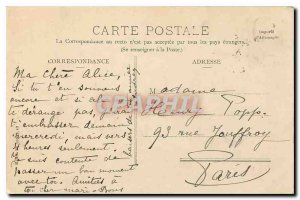 CARTE POSTALE
La Correspondance au recto n'est pas acceptée par tous les pays étrangers.
(Se renseigner à la Poste.)
CORRESPONDANCE
ADRESSE
Ma chère Alice,
Si tu t'en souviens
encore et si
dérange pas, j'irai
t'embrasser demain
mercredi, mais vers
heures seulement.
Je suis contente de
passer un bon moment
avec toi. Amitiés à
ton mari
Madame
Popp
93 rue Jouffroy
Paris